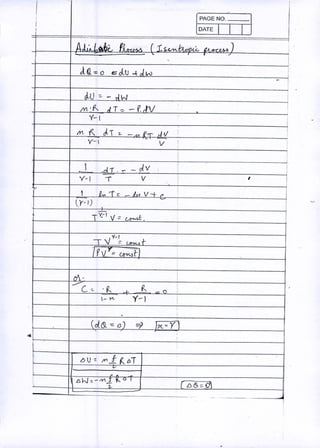 PAGE NO.
DATE
Adiabatic Process (Isentropic process)
dQ = 0 = dU + dW
dU = - dW
nR/γ-1 dT = - P.dV
nR/γ-1 dT = - nRT. dV/V
1/γ-1 dT/T = - dV/V
1/(γ-1) ln T = - ln V + c
T^(1/γ-1) V = const.
TV^(γ-1) = const
PV^γ = const
or
C = R/1-x + R/γ-1 = 0
(dQ = 0) ⇒ x = γ
ΔU = n f/2 R ΔT
ΔW = - n f/2 R ΔT
ΔQ = 0